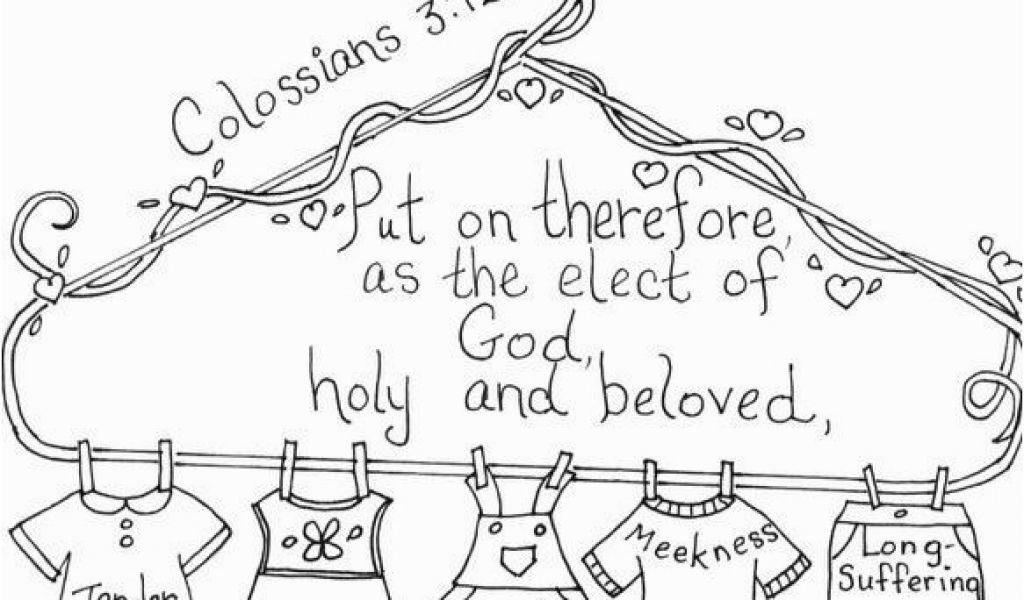 Colossians 3:12
Put on therefore,
as the elect of
God,
holy and beloved,
Meekness
Long-
Suffering